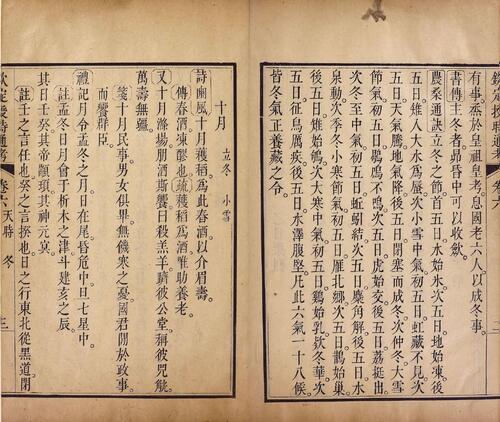 欽定授時通考　六　二
有事。烝於皇祖皇考。息國老六人。以成冬事。
書傳主冬者昴昏中。可以收斂。
農桑通訣立冬之節首五日水始氷。次五日地始凍。後
五日雉入大水爲蜃。次小雪中氣初五日虹藏不見。次
五日天氣騰地氣降。後五日閉塞而成冬。次仲冬大雪
節氣初五日鶡鴠不鳴。次五日虎始交。後五日荔挺出。
次冬至中氣初五日蚯蚓結。次五日麋角解。後五日水
泉動。次季冬小寒節氣初五日雁北鄉。次五日鵲始巢。
後五日雉始鴝。次大寒中氣初五日鷄始乳。款冬華。次
五日征鳥厲疾。後五日水澤腹堅。凡此六氣一十八候。
皆冬氣正養藏之令。
十月　立冬　小雪
詩豳風十月穫稻。爲此春酒。以介眉壽。
傳春酒。凍醪也。疏穫稻爲酒。唯助養老。
又十月滌場。朋酒斯饗。曰殺羔羊。躋彼公堂。稱彼兕觥。
萬壽無疆。
箋十月民事。男女俱畢。無饑寒之憂。國君閒於政事。
而饗群臣。
禮記月令孟冬之月。日在尾。昏危中。旦七星中。
註孟冬日月會于析木之津。斗建亥之辰。
其日壬癸。其帝顓頊。其神元冥。
註壬之言任也。癸之言揆也。日之行東北從黑道。閉
欽定授時通考　卷六　天時　冬　三